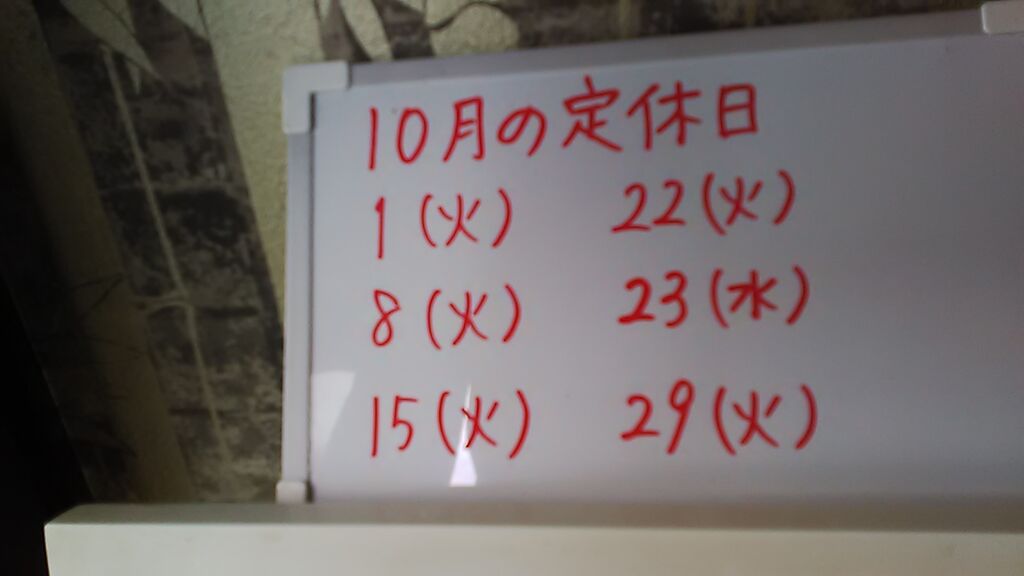 10月の定休日
1(火) 22(火)
8(火) 23(水)
15(火) 29(火)